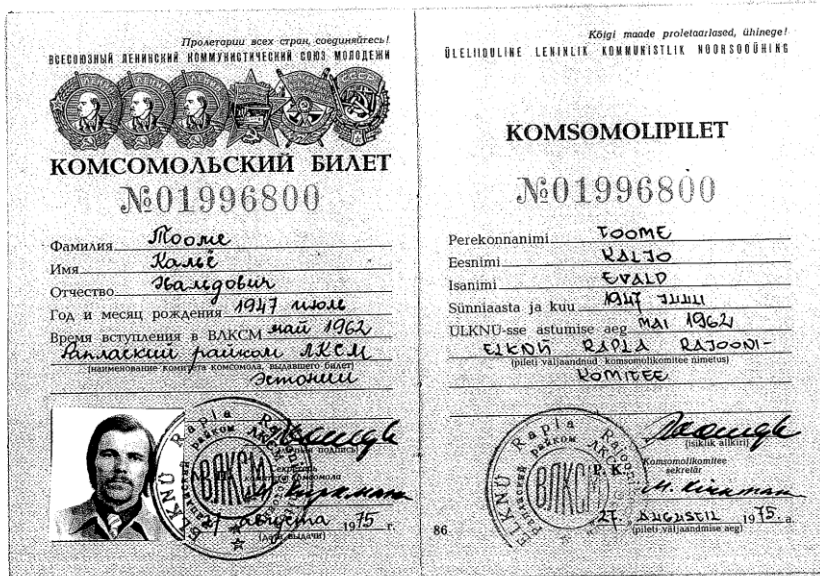 Пролетарии всех стран, соединяйтесь!
ВСЕСОЮЗНЫЙ ЛЕНИНСКИЙ КОММУНИСТИЧЕСКИЙ СОЮЗ МОЛОДЕЖИ
КОМСОМОЛЬСКИЙ БИЛЕТ
№01996800
Фамилия Тооме
Имя Кальё
Отчество Эвальдович
Год и месяц рождения 1947 июль
Время вступления в ВЛКСМ май 1962
Раплаский райком ЛКСМ
(наименование комитета комсомола, выдавшего билет)
Эстонии
ELKNÜ Rapla
ВЛКСМ
27 августа 1975 г.
(дата выдачи)
Kõigi maade proletaarlased, ühinege!
ÜLELIIDULINE LENINLIK KOMMUNISTLIK NOORSOOÜHING
KOMSOMOLIPILET
№01996800
Perekonnanimi TOOME
Eesnimi KALJO
Isanimi EVALD
Sünniaasta ja kuu 1947 JUULI
ÜLKNÜ-sse astumise aeg MAI 1962
ELKNÜ RAPLA RAJOONI-
(pileti väljaandnud komsomolikomitee nimetus)
KOMITEE
(isiklik allkiri)
ELKNÜ Rapla Rajooni
ВЛКСМ
P. K.
Komsomolikomitee
sekretär
M. Kirkman
27. AUGUSTIL 1975. a.
(pileti väljaandmise aeg)
86